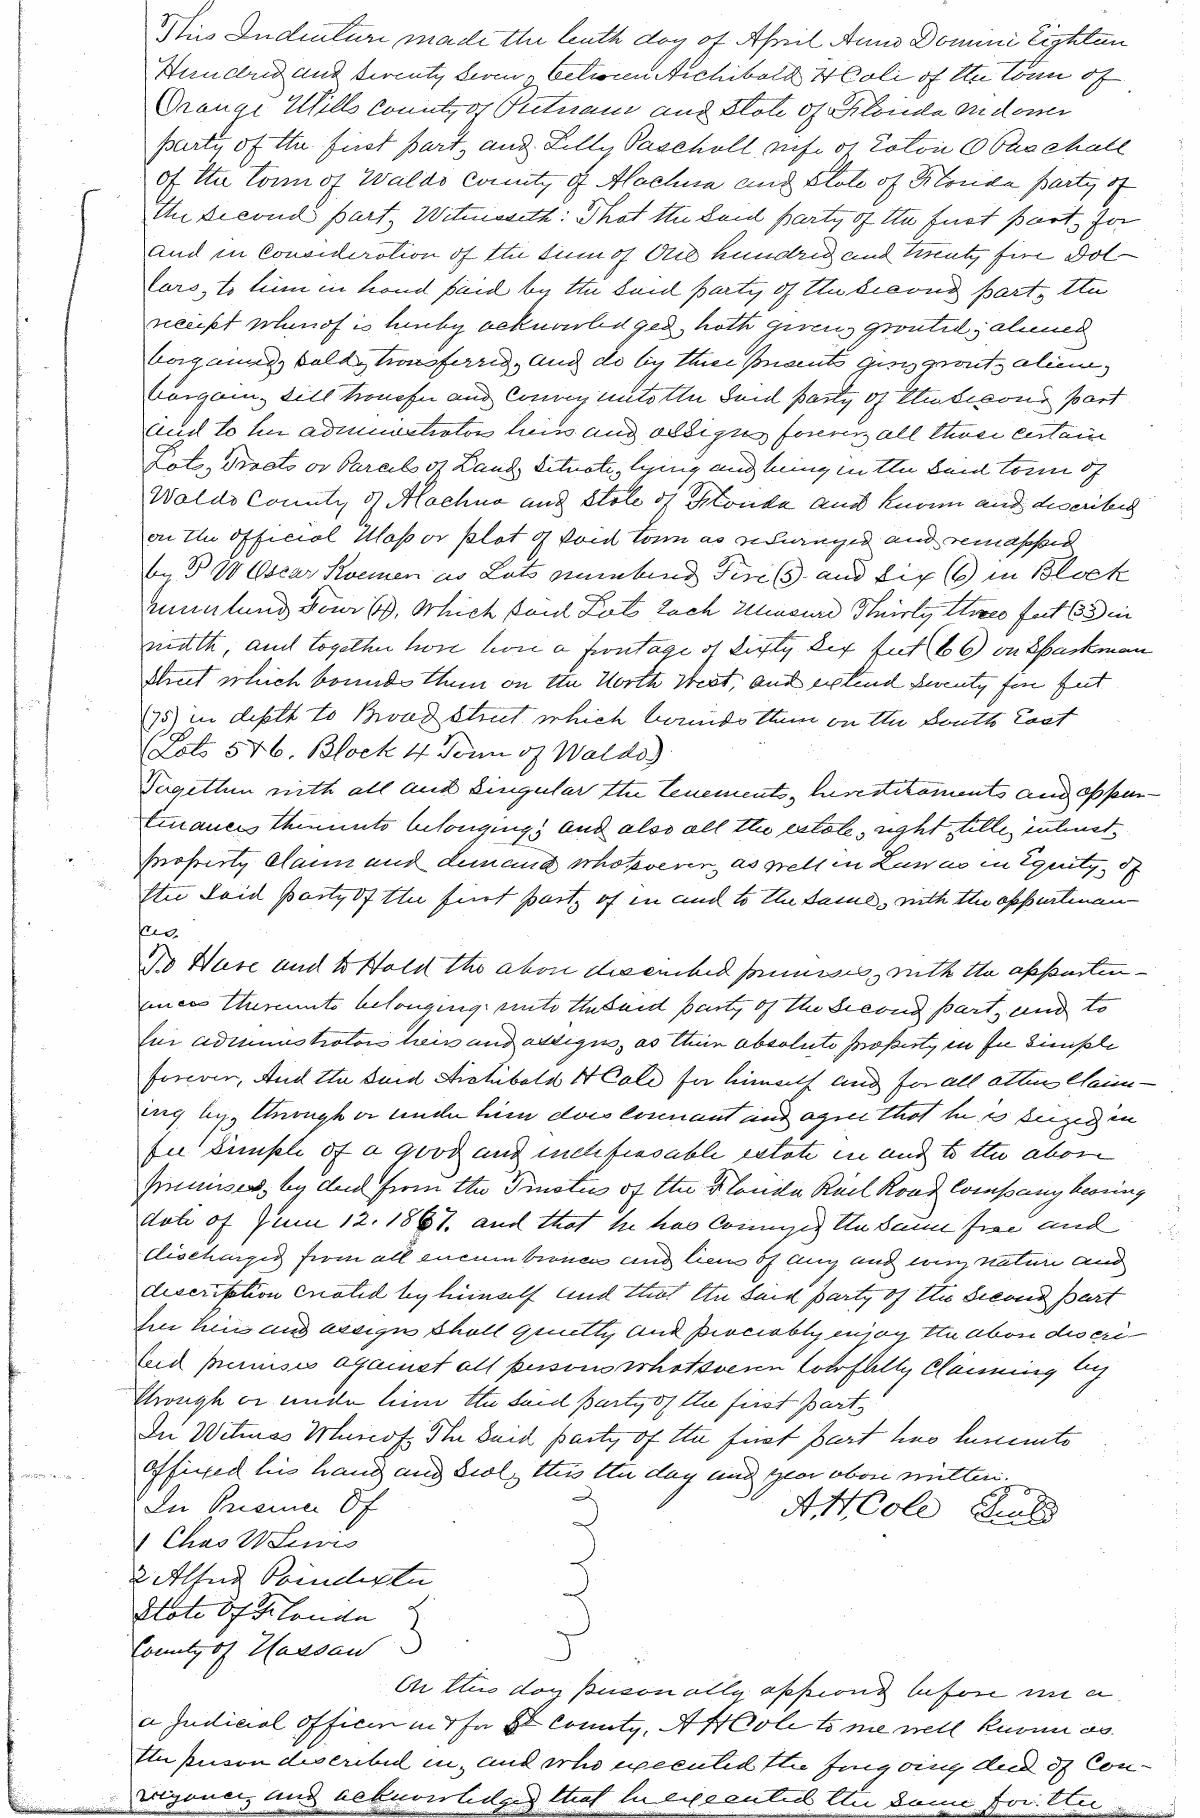 This Indenture made the tenth day of April Anno Domini Eighteen
Hundred and Seventy Seven, between Archibald H Cole of the Town of
Orange Mills County of Putnam and State of Florida widower
party of the first part, and Lilly Paschall wife of Eaton O Paschall
of the town of Waldo County of Alachua and State of Florida party of
the second part, Witnesseth: That the Said party of the first part, for
and in Consideration of the sum of One hundred and twenty five Dol-
lars, to him in hand paid by the Said party of the Second part, the
receipt whereof is hereby acknowledged, hath given, granted, aliened
bargained, sold, transferred, and do by these presents give, grant, aliene,
bargain, sell transfer and Convey unto the Said party of the Second part
and to her administrators heirs and assigns forever, all those certain
Lots, Tracts or Parcels of Land, Situate, lying and being in the Said town of
Waldo County of Alachua and State of Florida and known and described
on the official Map or plat of Said town as resurveyed and remapped
by P W Oscar Koemen as Lots numbered Five (5) and Six (6) in Block
numbered Four (4), Which Said Lots Each Measure Thirty three feet (33) in
width, and together have have a frontage of Sixty Six feet (66) on Sparkman
Street which bounds them on the North West, and extend Seventy five feet
(75) in depth to Broad Street which bounds them on the South East
(Lots 5 & 6. Block 4 Town of Waldo)
Together with all and Singular the tenements, hereditaments and appur-
tenances thereunto belonging; and also all the estate, right, title, interest,
property claim and demand whatsoever, as well in Law as in Equity, of
the Said party Of the first part, of in and to the Same, with the appurtenan-
ces.
To Have and to Hold the above described premises, with the appurten-
ances thereunto belonging unto the Said party of the Second part, and to
her administrators heirs and assigns, as their absolute property in fee Simple
forever, And the Said Archibald H Cole for himself and for all others Claim-
ing by, through or under him does covenant and agree that he is seized in
fee Simple of a good and indefeasable estate in and to the above
premises, by deed from the Trustees of the Florida Rail Road Company bearing
date of June 12. 1867. and that he has Conveyed the Same free and
discharged from all encumbrances and liens of any and every nature and
description created by himself and that the Said party of the Second part
her heirs and assigns Shall quietly and peaceably enjoy the above descri-
bed premises against all persons whatsoever lawfully Claiming by
through or under him the Said party of the first part,
In Witness Whereof, The Said party of the first part has hereunto
affixed his hand and Seal, this the day and year above written.
In Presence Of
A. H. Cole Seal
1 Chas W Lewis
2 Alfred Poindexter
State Of Florida
County of Nassau
On this day personally appeared before me a
a Judicial officer in & for Sd County, A H Cole to me well known as
the person described in, and who executed the foregoing deed of Con-
veyance, and acknowledged that he executed the Same for the